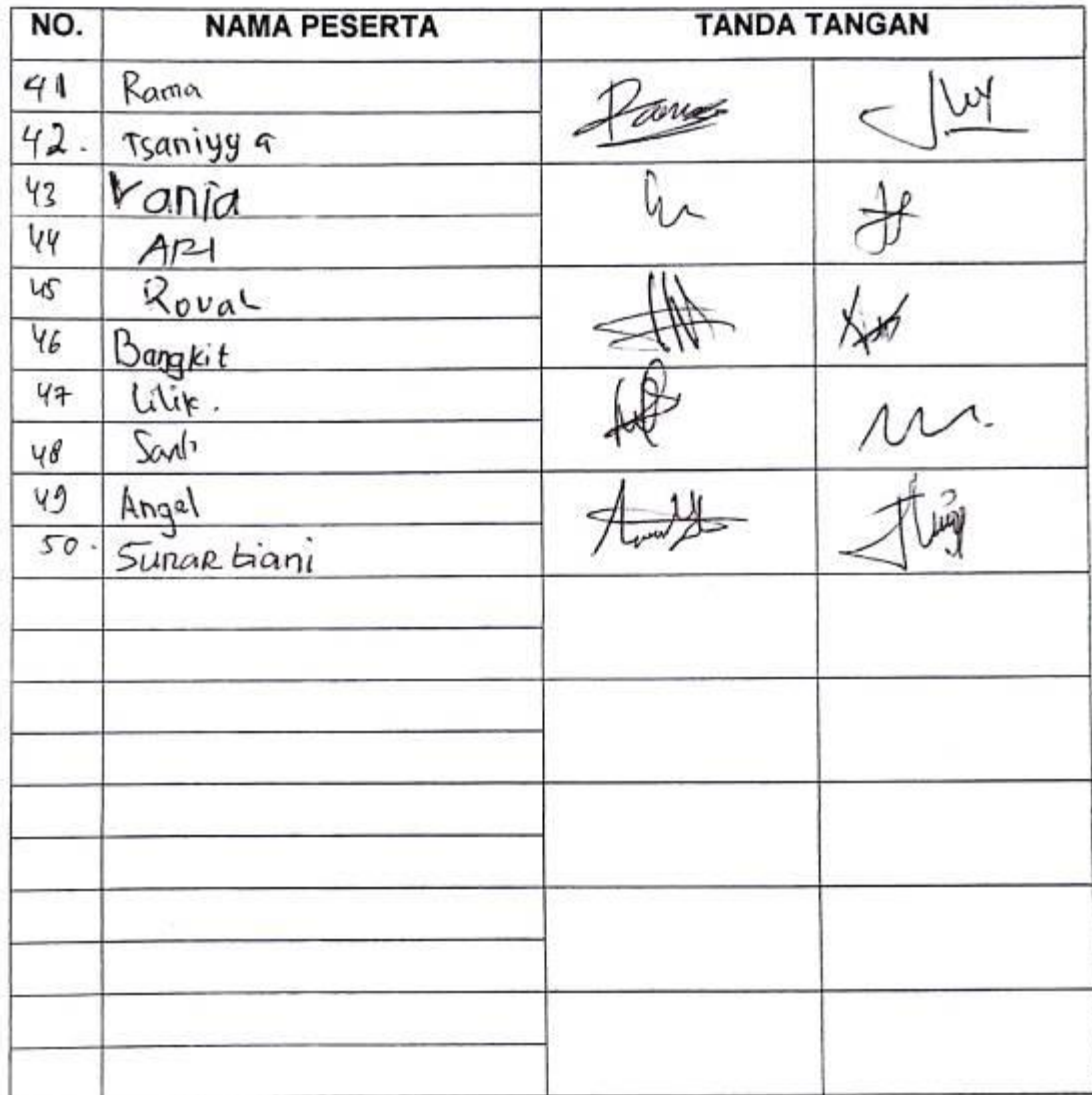 NO. NAMA PESERTA TANDA TANGAN
41 Rama
42. Tsaniyya
43 Vania
44 ARI
45 Roval
46 Bangkit
47 Lilik.
48
49 Angel
50. Sunartiani